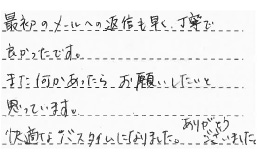 最初のメールへの返信も早く、丁寧で
良かったです。
また何かあったら お願いしたいと
思っています。
快適なバスタイムになりました。ありがとう
ございました。